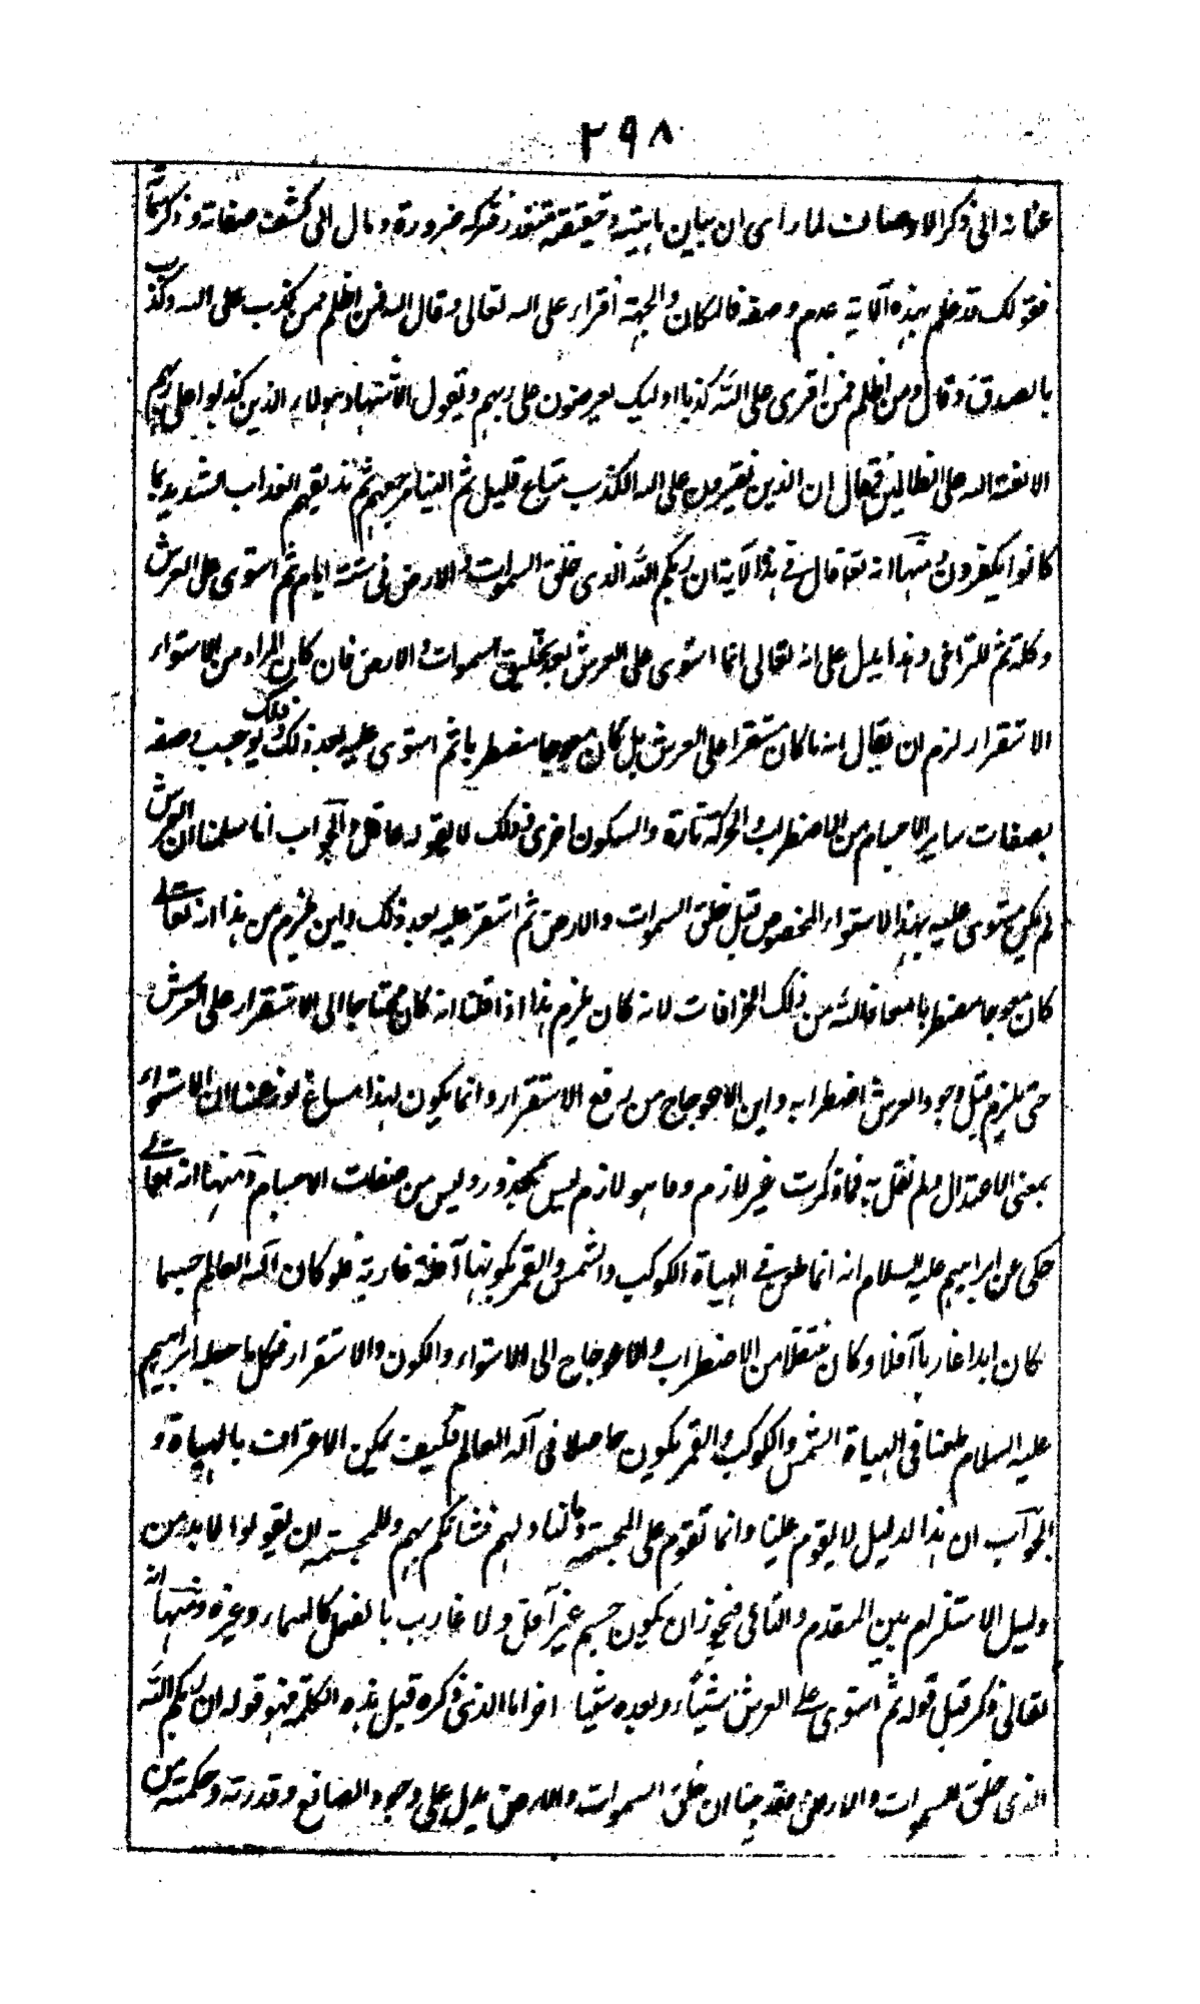 ٢٩٨
عنانه الى ذكر الاوصاف لما راى ان بيان ماهيته وحقيقته متعذر فتركه ضرورة ومال الى كشف صفاته وذكر
فقولك قد علم بهذه الآية عدم وصفه فالمكان والجهة افتراء على الله تعالى وقال الله فمن اظلم ممن كذب على الله وكذب
بالصدق وقال ومن اظلم ممن افترى على الله كذبا اوليك يعرضون على ربهم ويقول الاشهاد هولاء الذين كذبوا على ربهم
الا لعنة الله على الظالمين وقال ان الذين يفترون على الله الكذب متاع قليل ثم الينا مرجعهم ثم نذيقهم العذاب الشديد بما
كانوا يكفرون ومنها انه تعا قال في هذا الآية ان ربكم الله الذى خلق السموات والارض فى ستة ايام ثم استوى على العرش
وكلة ثم للتراخى وهذا يدل على انه تعالى انما استوى على العرش بعد تخليق السموات والارض فان كان المراد من الاستواء
الاستقرار لزم ان يقال انه ما كان مستقرا على العرش بل كان معوجا مضطربا ثم استوى عليه بعد ذلك وذلك يوجب وصفه
بصفات ساير الاجسام من الاضطراب والحركة تارة والسكون اخرى وذلك لا يقوله عاقل والجواب انا سلمنا ان العرش
لم يكن مستوى عليه بهذا الاستواء المخصوص قبل خلق السموات والارض ثم استقر عليه بعد ذلك واين يلزم من هذا انه تعالى
كان معوجا مضطربا معاذ الله من ذلك الخرافات لانه كان يلزم هذا اذا قلنا انه كان محتاجا الى الاستقرار على العرش
حتى يلزم قبل وجود العرش اضطرابه واين الاعوجاج من رفع الاستقرار وانما يكون لهذا مساغ لو زعمنا ان الاستواء
بمعنى الاعتدال ولم نقل به فما ذكرت غير لازم وما هو لازم ليس بمحذور وليس من صفات الاجسام ومنها انه تعالى
حكى عن ابراهيم عليه السلام انه انما طعن في الهياة الكوكب والشمس والقمر بكونها آفلة غاربة فلو كان آله العالم جسما
كان ابدا غاربا آفلا وكان منتقلا من الاضطراب والاعوجاج الى الاستواء والكون والاستقرار فكل ما جعله ابراهيم
عليه السلام طعنا فى الهياة الشمس والكوكب والقمر يكون حاصلا فى آله العالم فكيف يمكن الاعتراف بالهياة و
الجواب ان هذا الدليل لا يقوم علينا وانما تقوم على المجسمة ومالنا ولهم فشانكم بهم وللمجسمة ان يقولوا لا بد من
دليل الاستلزام بين المقدم والتالى فيجوز ان يكون جسم غير آفل ولا غارب بالفعل كالسماء وغيره ومنها انه
تعالى ذكر قبل قوله ثم استوى على العرش شيئا وبعده شيئا اخر اما الذى ذكره قبل هذه الكلمة فهو قوله ان ربكم الله
الذى خلق السموات والارض وقد بينا ان خلق السموات والارض يدل على وجود الصانع وقدرته وحكمته من